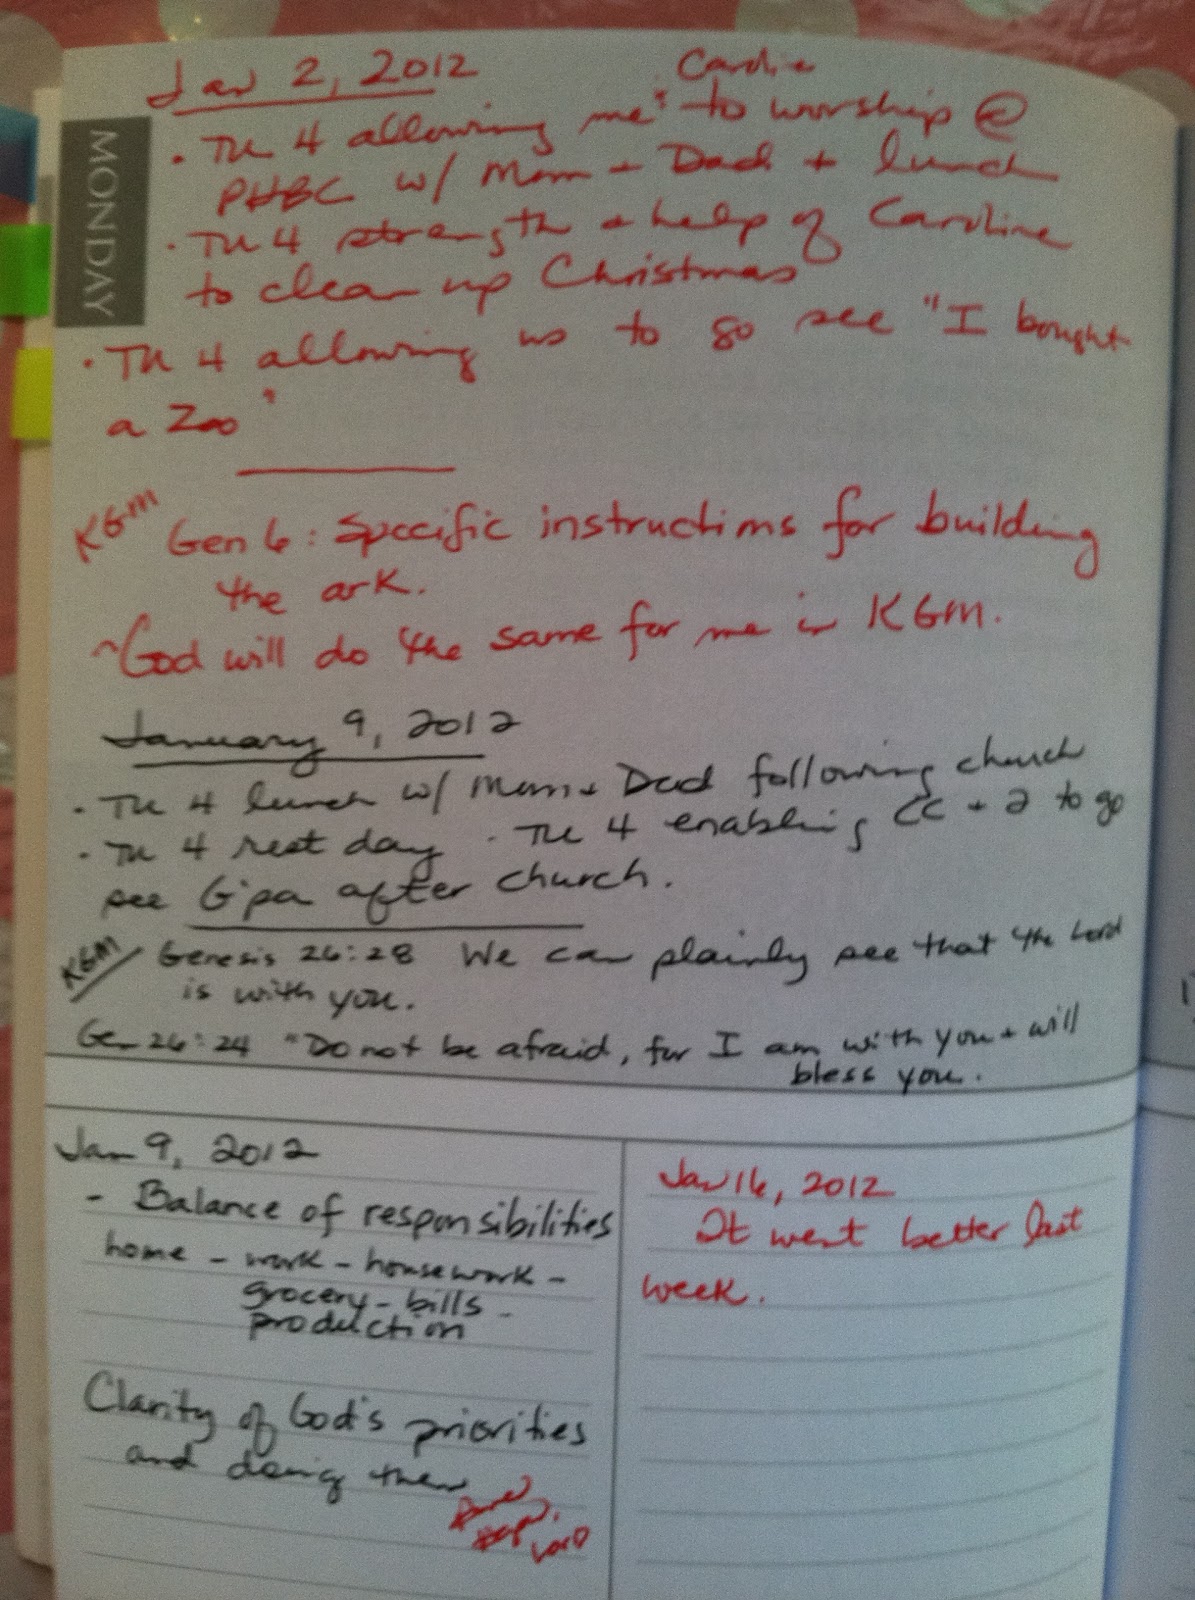 MONDAY
Jan 2, 2012
Caroline
• TU 4 allowing me to worship @
PHBC w/ Mom + Dad + lunch
• TU 4 strength + help of Caroline
to clean up Christmas
• TU 4 allowing us to go see "I bought
a Zoo"
KGM
Gen 6: Specific instructions for building
the ark.
~God will do the same for me in KGM.
January 9, 2012
• TU 4 lunch w/ Mom + Dad following church
• TU 4 rest day • TU 4 enabling CC + 2 to go
see G'pa after church.
KGM
Genesis 26:28 We can plainly see that the Lord
is with you.
Gen 26:24 "Do not be afraid, for I am with you + will
bless you.
Jan 9, 2012
- Balance of responsibilities
home - work - housework -
grocery - bills -
production
Clarity of God's priorities
and doing them
Lord
Jan 16, 2012
It went better last
week.